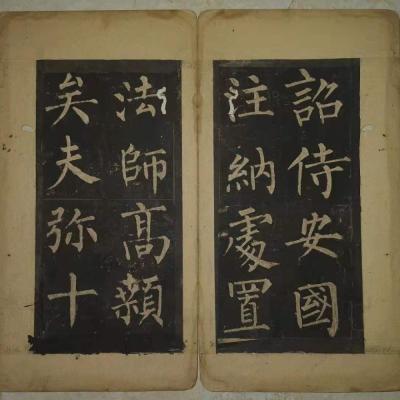 詔侍安國
注納處置
法師高顙
矣夫弥十